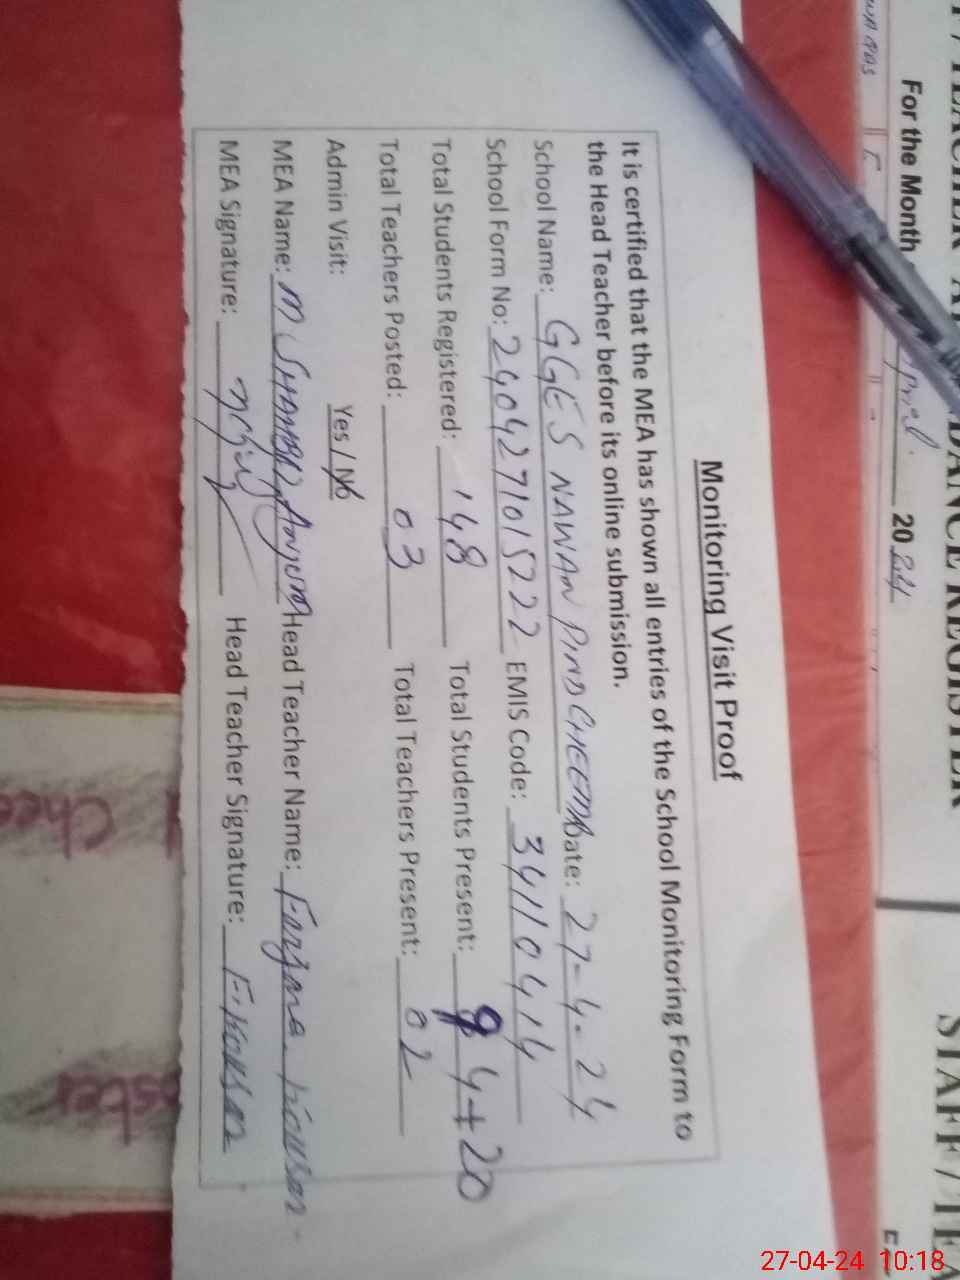 Monitoring Visit Proof
It is certified that the MEA has shown all entries of the School Monitoring Form to
the Head Teacher before its online submission.
School Name: GGES NAWAN PIND CHEEMA Date: 27-4-24
School Form No: 2404271015222 EMIS Code: 34110414
Total Students Registered: 148 Total Students Present: 94+20
Total Teachers Posted: 03 Total Teachers Present: 02
Admin Visit: Yes / No
MEA Name: M Anjum Head Teacher Name: Farzana Kousar
MEA Signature: Head Teacher Signature: F. Kousar
For the Month April 20
STAFF / TEA
27-04-24 10:18